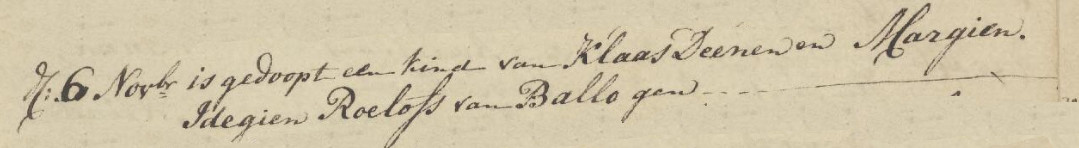 d: 6 Novbr is gedoopt een kind van Klaas Deenen en Margien.
Idegien Roelofs van Ballo gen